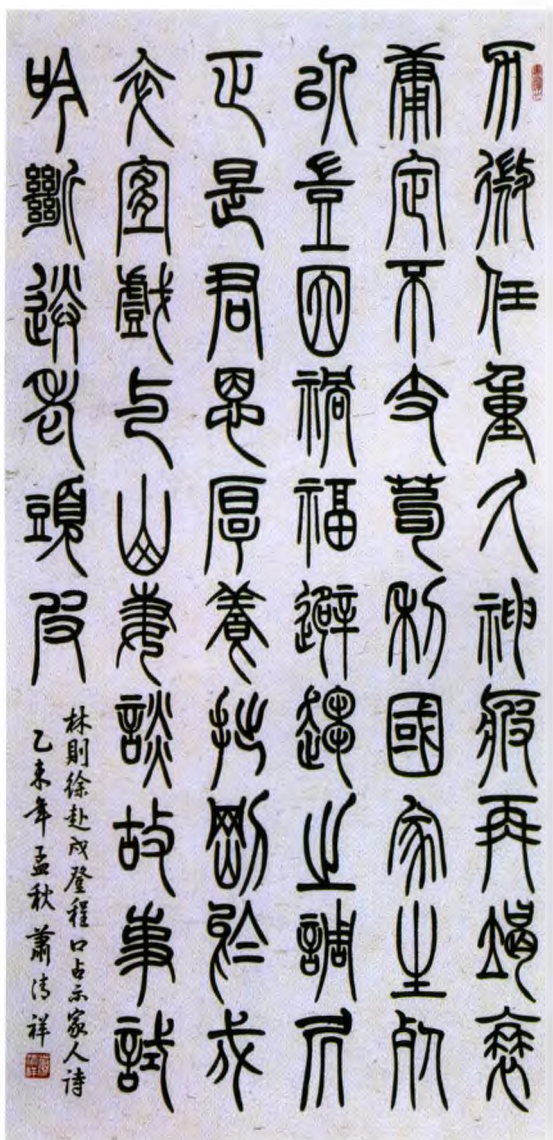 力微任重久神疲再竭衰
庸定不支苟利國家生死
以豈因禍福避趨之謫居
正是君恩厚養拙剛於戍
卒宜戲与山妻談故事試
吟斷送老頭皮
林則徐赴戍登程口占示家人詩
乙未年孟秋蕭清祥